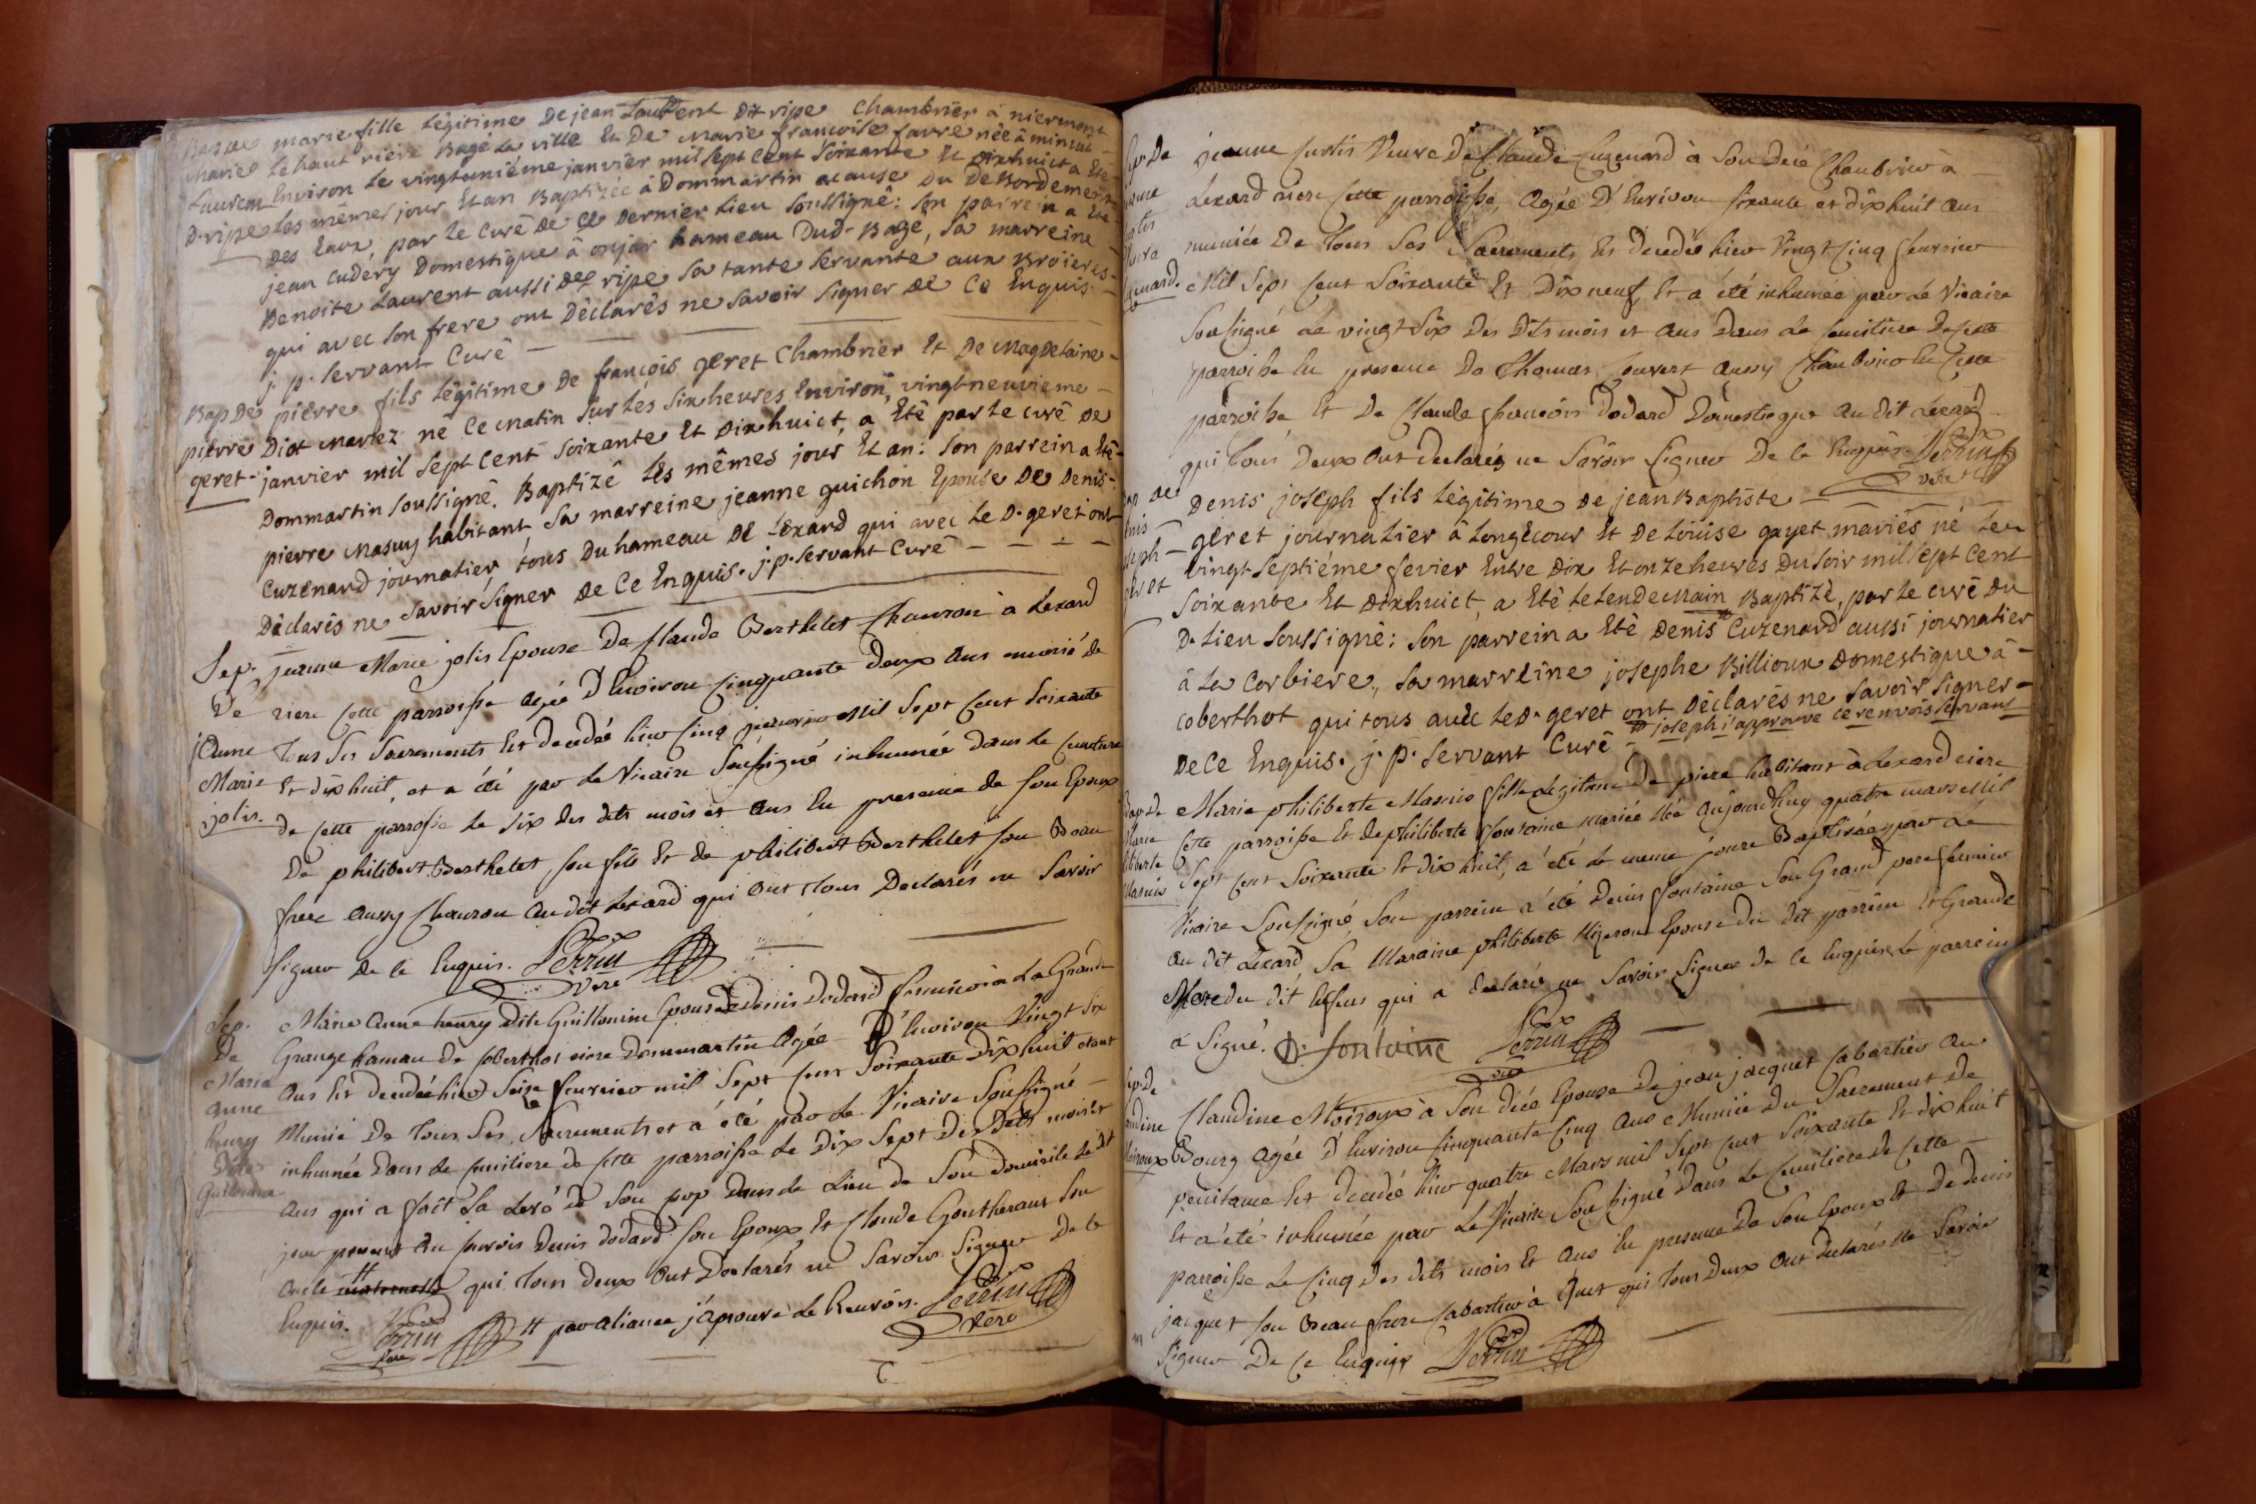 Bap de marie fille Légitime De jean Laurent Dit ripe Chambrier à niermont
marie Le haut riére Bagé La ville Et De marie francoise favre née à minuit
Laurent Environ Le vingtuniéme janvier mil sept cent soixante Et dixhuict a Eté
D. ripe Les mêmes jour Et an Baptizée à Dommartin acause Du Debordement
Des Eaux, par Le curé De ce Dernier Lieu soussigné: son parrein a Eté
jean cudéry Domestique à onjar hameau Dud. Bagé, sa marreine
Benoite Laurent aussi De ripe sa tante servante aux Broieres
qui avec son frere ont Déclarés ne savoir signer De Ce Enquis.
j. p. servant Curé
Bap De pierre fils Légitime De françois geret Chambrier Et De Magdelaine
pierre Diot Mariez né Ce matin sur Les six heures Environ, vingtneuvieme
geret. janvier mil sept Cent soixante Et dixhuict, a Eté par Le curé De
Dommartin soussigné. Baptizé Les mêmes jour Et an: son parrein a Eté
pierre Masuy habitant, sa marreine jeanne guichon Epouse De Denis
Cuzenard journalier, tous Du hameau De Lexard qui avec Le D. geret ont
Déclarés ne savoir signer De Ce Enquis. j. p. servant Curé
Sep. jeanne Marie jolis Epouse De Claude Berthelet Chauron à Lexard
De riere Cette parroisse agée D'Environ Cinquante Deux ans munie de
jeanne Tous Ses Sacrements Est decedée hier Cinq jeanvier Mil Sept Cent soixante
Marie Et dix huit, et a été par Le Vicaire Soussigné inhumée dans le Cemitiere
jolis. de Cette parroisse le six des dits mois et ans En presence de son Epoux
De philibert Berthelet son fils Et de philibert Berthelet son Beau
frere aussy Chauron au dit Lexard qui ont Tous Declarés ne Savoir
signer de Ce Enquis. Perrin
vere
Sep. Marie Anne henry dite Guillonine Epouse De Denis Dodard à La Grande
De Grange hamau de Coberthot riere Dommartin agée D'Environ Vingt six
Marie ans Est decedée hier Seise feuvrier mil Sept Cent Soixante Dix huit étant
anne Munie De Tous Ses Sacrements et a été par Le Vicaire Soussigné
henry inhumée Dans Le Cemitiere de Cette parroisse Le Dix Sept Des Dits mois et
Dite ans qui a fait La Levé de Son Dans Le Lieu de Son domicile Le dit
Guillonine jour present au Denis dodard son Epoux Et Claude Goutheraut Son
oncle qui Tous Deux Ont Declarés ne Savoir Signer De Ce
Enquis. Perrin # par aliance j'aprouve Le Renvois. Perrin
vere
Sep. De jeanne Curtis Veuve De Claude Cuzenard à Son Decé Chambrier à
Lexard riere Cette parroisse, agée D'Environ soixante et dix huit ans
munie De Tous Ses Sacrements Est decedée hier Vingt Cinq feuvrier
Mil Sept Cent Soixante Et Dix neuf, Et a été inhumée par Le Vicaire
Soussigné Le vingt Six Des Dits mois et ans Dans Le Cemitiere De Cette
parroisse En presence De Thomas Convert aussy Chambrier En Cette
parroisse, Et De Claude francois Dodard Domestique au dit Lexard
qui Tous Deux Ont declarés ne Savoir Signer De Ce Enquis. Perrin
vere
Denis joseph fils Légitime De jean Baptiste
geret journalier à Longecour Et De Louise gayet mariés né Le
vingt septiéme fevier Entre Dix Et onze heures Du soir mil sept Cent
soixante Et dixhuict, a Eté Le Lendemain Baptizé, par Le curé Du
D. Lieu soussigné: son parrein a Eté Denis # Cuzenard aussi journalier
à La Corbiere, sa marreine josephe Billioux Domestique à
Coberthot qui tous avec Le D. geret ont Déclarés ne savoir signer
De Ce Enquis. j. p. servant Curé # joseph j'approuve ce renvois servant
Bap. De Marie philiberte Masuis fille Legitime De piere habitant à Lexard riere
Marie Cette parroisse Et de philiberte fontaine mariés Née aujourdhuy quatre mars Mil
Sept Cent Soixante Et dix huit, a été le meme jour Baptisée par Le
Masuis Vicaire Soussigné, Son parrein a été Denis fontaine Son Grand pere fermier
au dit Lexard, Sa Maraine philiberte Epouse du dit parrein Et Grande
Mere du dit Enfans qui a declaré ne Savoir Signer de Ce Enquise Le parrein
a Signé. D. fontaine Perrin
Sep. De Claudine Moiroux à Son Décé Epouse De jean jacquet Cabartier au
Moiroux Bourg agée D'Environ Cinquante Cinq ans Munie Du Sacrement De
penitance Est decedé hier quatre Mars mil Sept Cent Soixante Et dix huit
Et a été inhumée par Le Vicaire Soussigné Dans Le Cemitiere de Cette
parroisse Le Cinq Des dits mois Et ans En presence De Son Epoux Et De denis
jacquet Son Beau frere Cabartier à qui Tous Deux Ont declarés Ne Savoir
Signer De Ce Enquis Perrin